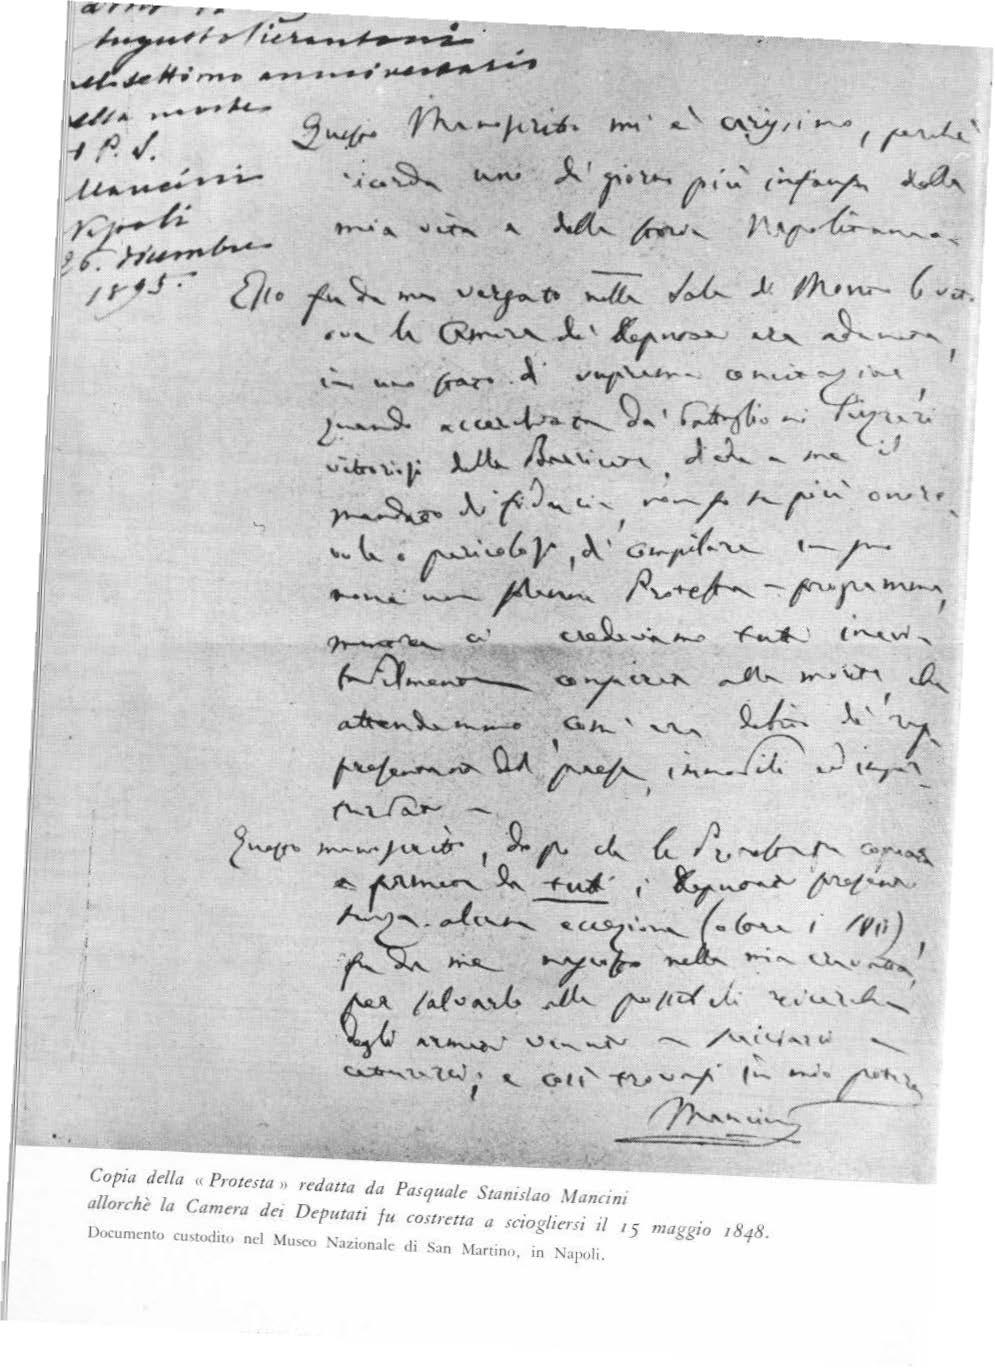 Augusto Pierantoni
nel settimo anniversario
della morte
di P. S.
Mancini
Napoli
26. dicembre
1895.
Questo Manoscritto mi è carissimo, perchè
ricorda uno de' giorni più infausti della
mia vita e della storia Napolitana.
Esso fu da me vergato nella Sala di Monte
ove la Camera de' Deputati era adunata,
in uno stato di suprema concitazione,
quando accerchiata da' battaglioni Svizzeri
vittoriosi delle Barricate, diede a me il
mandato di fiducia, non so se più onore-
vole o pericoloso, di compilare in suo
nome una solenne Protesta - programma,
mentre ci credevamo tutti inevi-
tabilmente consacrati alla morte, che
attendemmo, com'era debito de' rap-
presentanti del paese, immobili ed imper-
turbati -
Questo manoscritto, dopo che la Protesta copiata
e firmata da tutti i Deputati presenti
senza alcuna eccezione (oltre i
fu da me nascosto nella mia cravatta,
per salvarlo alle possibili ricerche
degli armati venuti a
catturarci; e così trovasi in mio potere
Mancini
Copia della « Protesta » redatta da Pasquale Stanislao Mancini
allorchè la Camera dei Deputati fu costretta a sciogliersi il 15 maggio 1848.
Documento custodito nel Museo Nazionale di San Martino, in Napoli.